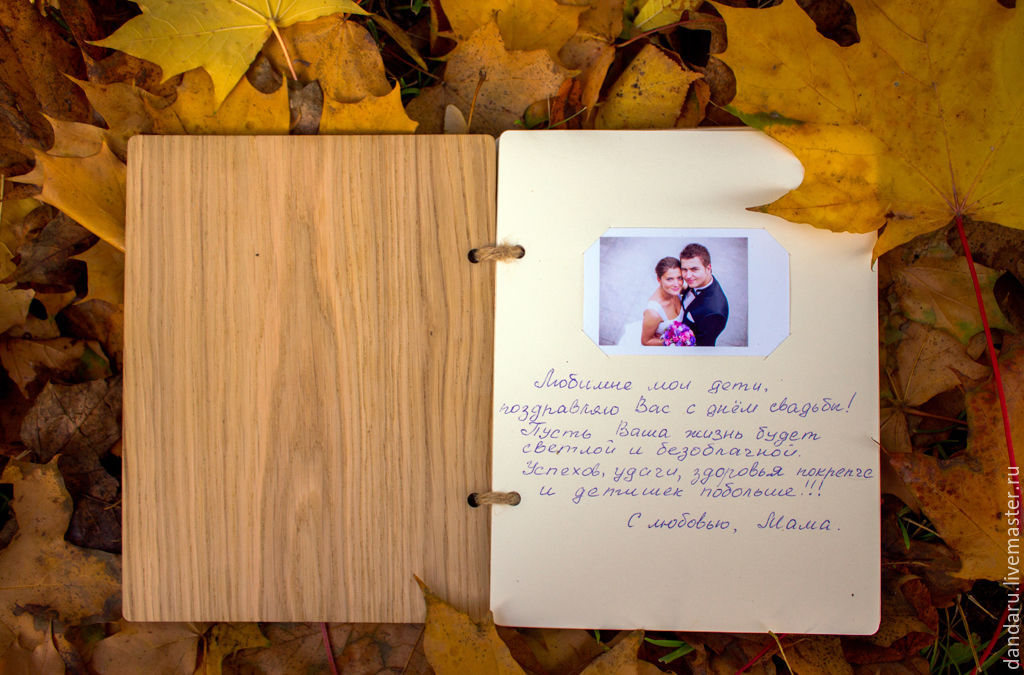 Любимые мои дети,
поздравляю Вас с днём свадьбы!
Пусть Ваша жизнь будет
светлой и безоблачной.
Успехов, удачи, здоровья покрепче
и детишек побольше!!!
С любовью, Мама.
dandaru.livemaster.ru